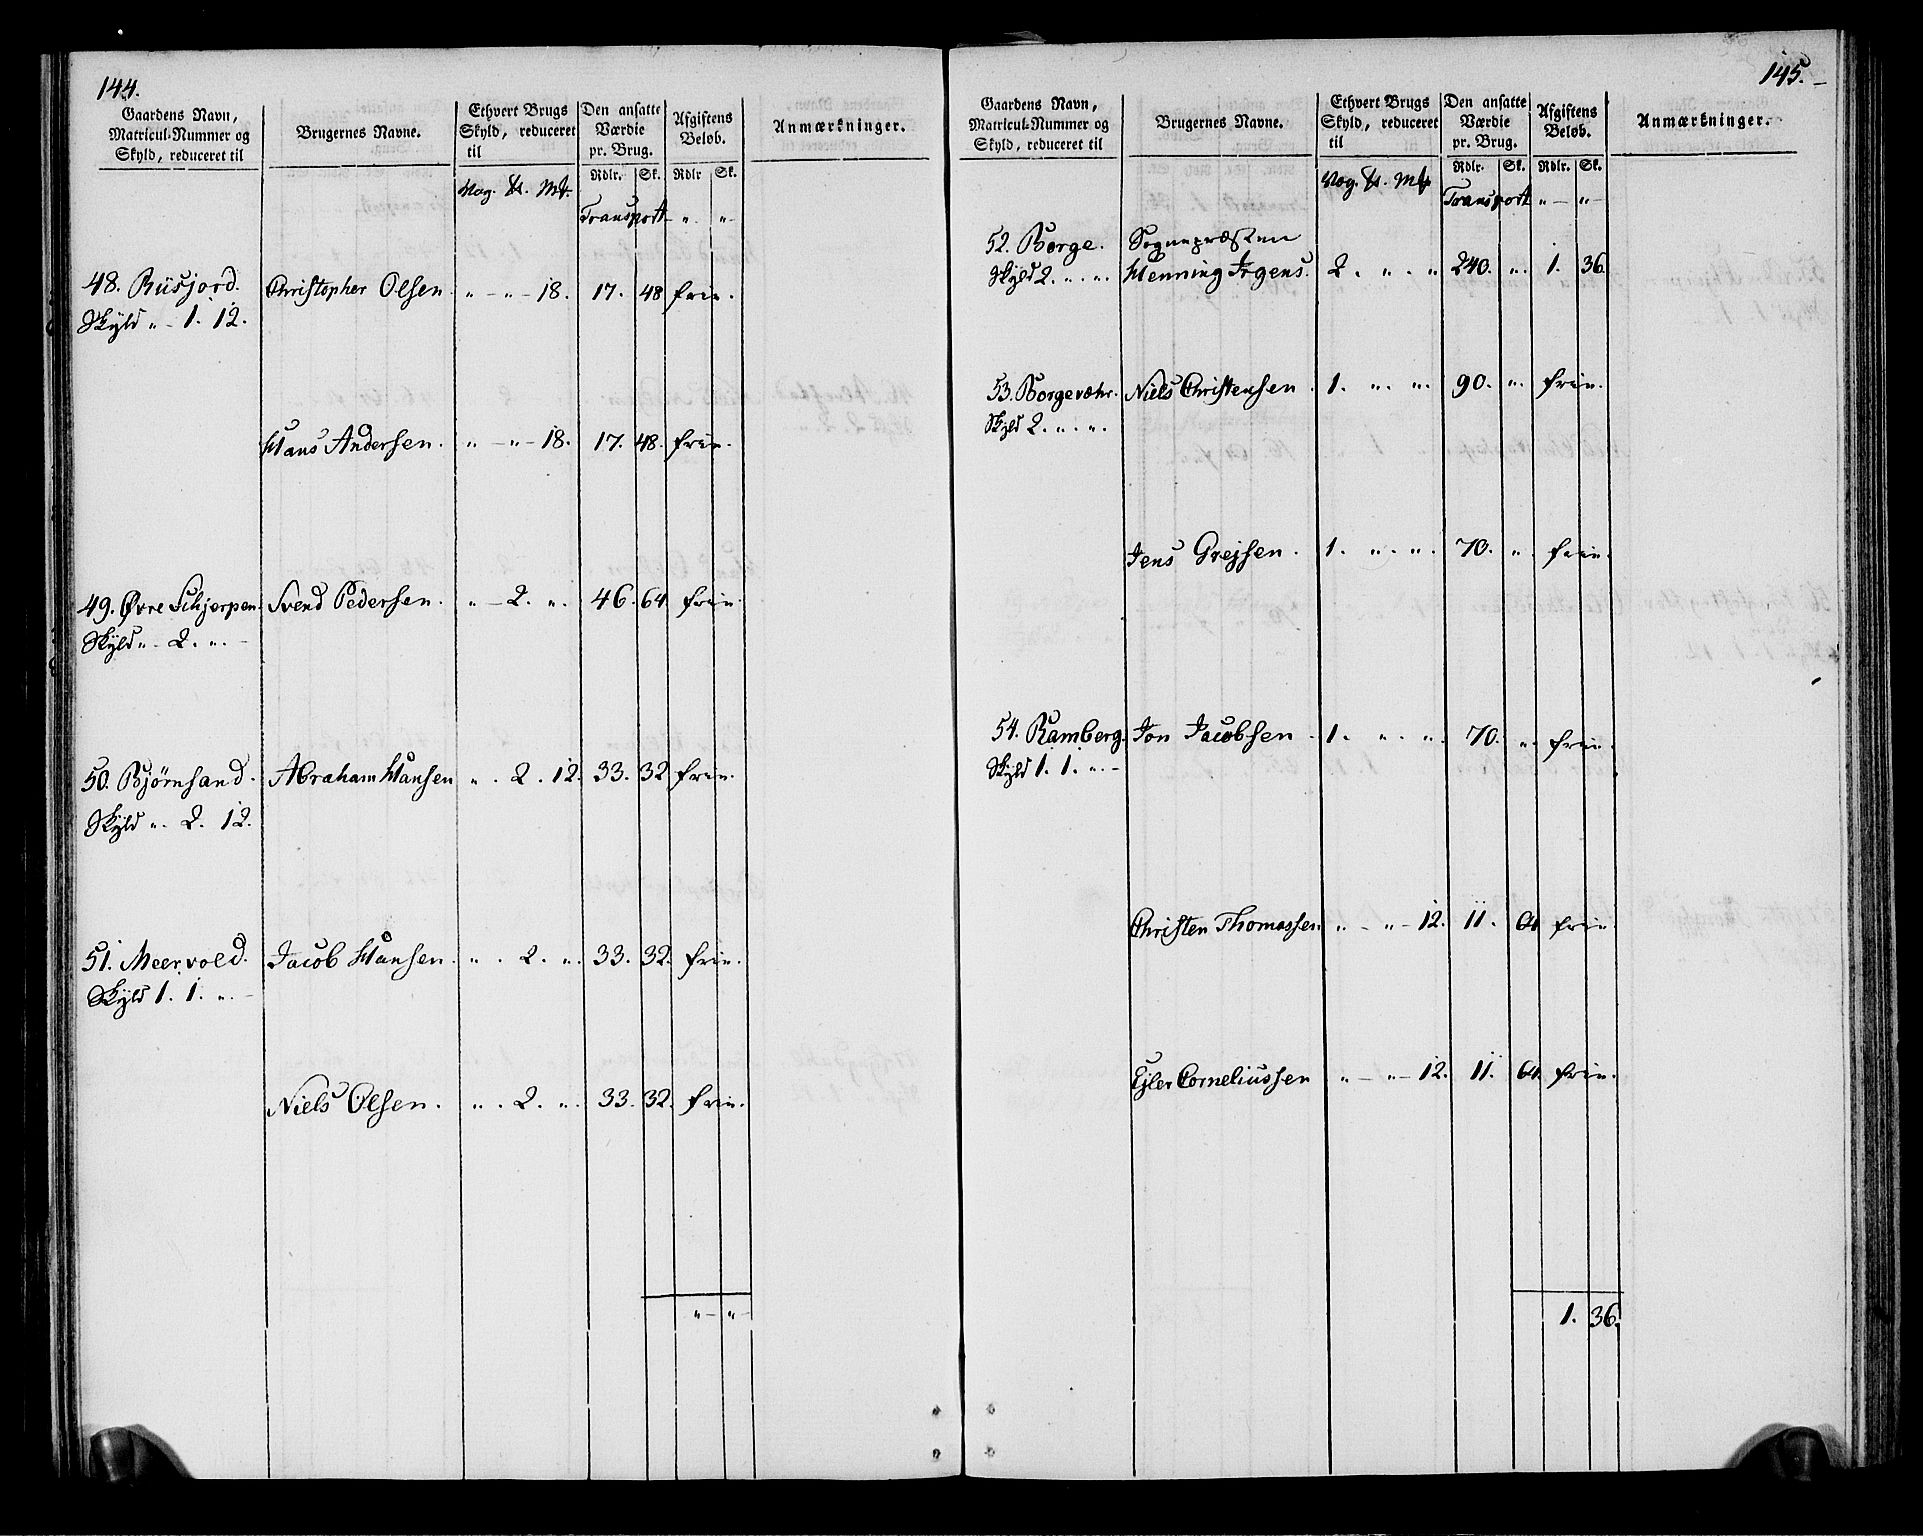 144.
Gaardens Navn, Matricul-Nummer og Skyld, reduceret til
Brugernes Navne.
Ethvert Brugs Skyld, reduceret til
Den ansatte Værdie pr. Brug.
Afgiftens Beløb.
Anmærkninger.
Rdlr. Sk. Rdlr Sk.
Vog. ℔. Mk.
Transport " "
48. Buisjord. Christophher Olsen " - " - 18. 17. 48 frie.
Skyld " - 1. 12.
Hans Andersen. " - " - 18. 17. 48. frie.
49. Øvre Schjerpen. Svend Pedersen. " - 2. ". 46. 64 frie.
Skyld " - 2. ". -
50. Bjørnsand. Abraham Hansen ". 2. 12. 33. 32 frie.
Skyld ". 2. 12.
51. Meervold. Jacob Hansen. ". 2. ". 33. 32. frie.
Skyld 1. 1. ". -
Niels Olsen. ". 2. ". 33. 32. frie.
" - " -
145. -
Gaardens Navn, Matricul-Nummer og Skyld, reduceret til
Brugernes Navne.
Ethvert Brugs Skyld, reduceret til
Den ansatte Værdie pr. Brug.
Afgiftens Beløb.
Anmærkninger.
Rdlr. Sk. Rdlr. Sk.
Vog. ℔. Mk
Transport " - " -
52. Borge. Sognepræsten
Skyld 2. ". ". Henning Irgens. 2. ". " 240. ". 1. 36.
53. Borgevæhr. Niels Christensen. 1. ". ". 90. ". frie.
Skyld 2. ". ".
Jens Grejsen. 1. ". ". 70. ". frie.
54. Ramberg. Jon Jacobsen. 1. ". ". 70. ". frie.
Skyld 1. 1. ". -
Christen Thomassen " - " - 12. 11. 64 frie.
Ejler Corneliussen " - " - 12. 11. 64 frie.
1. 36.